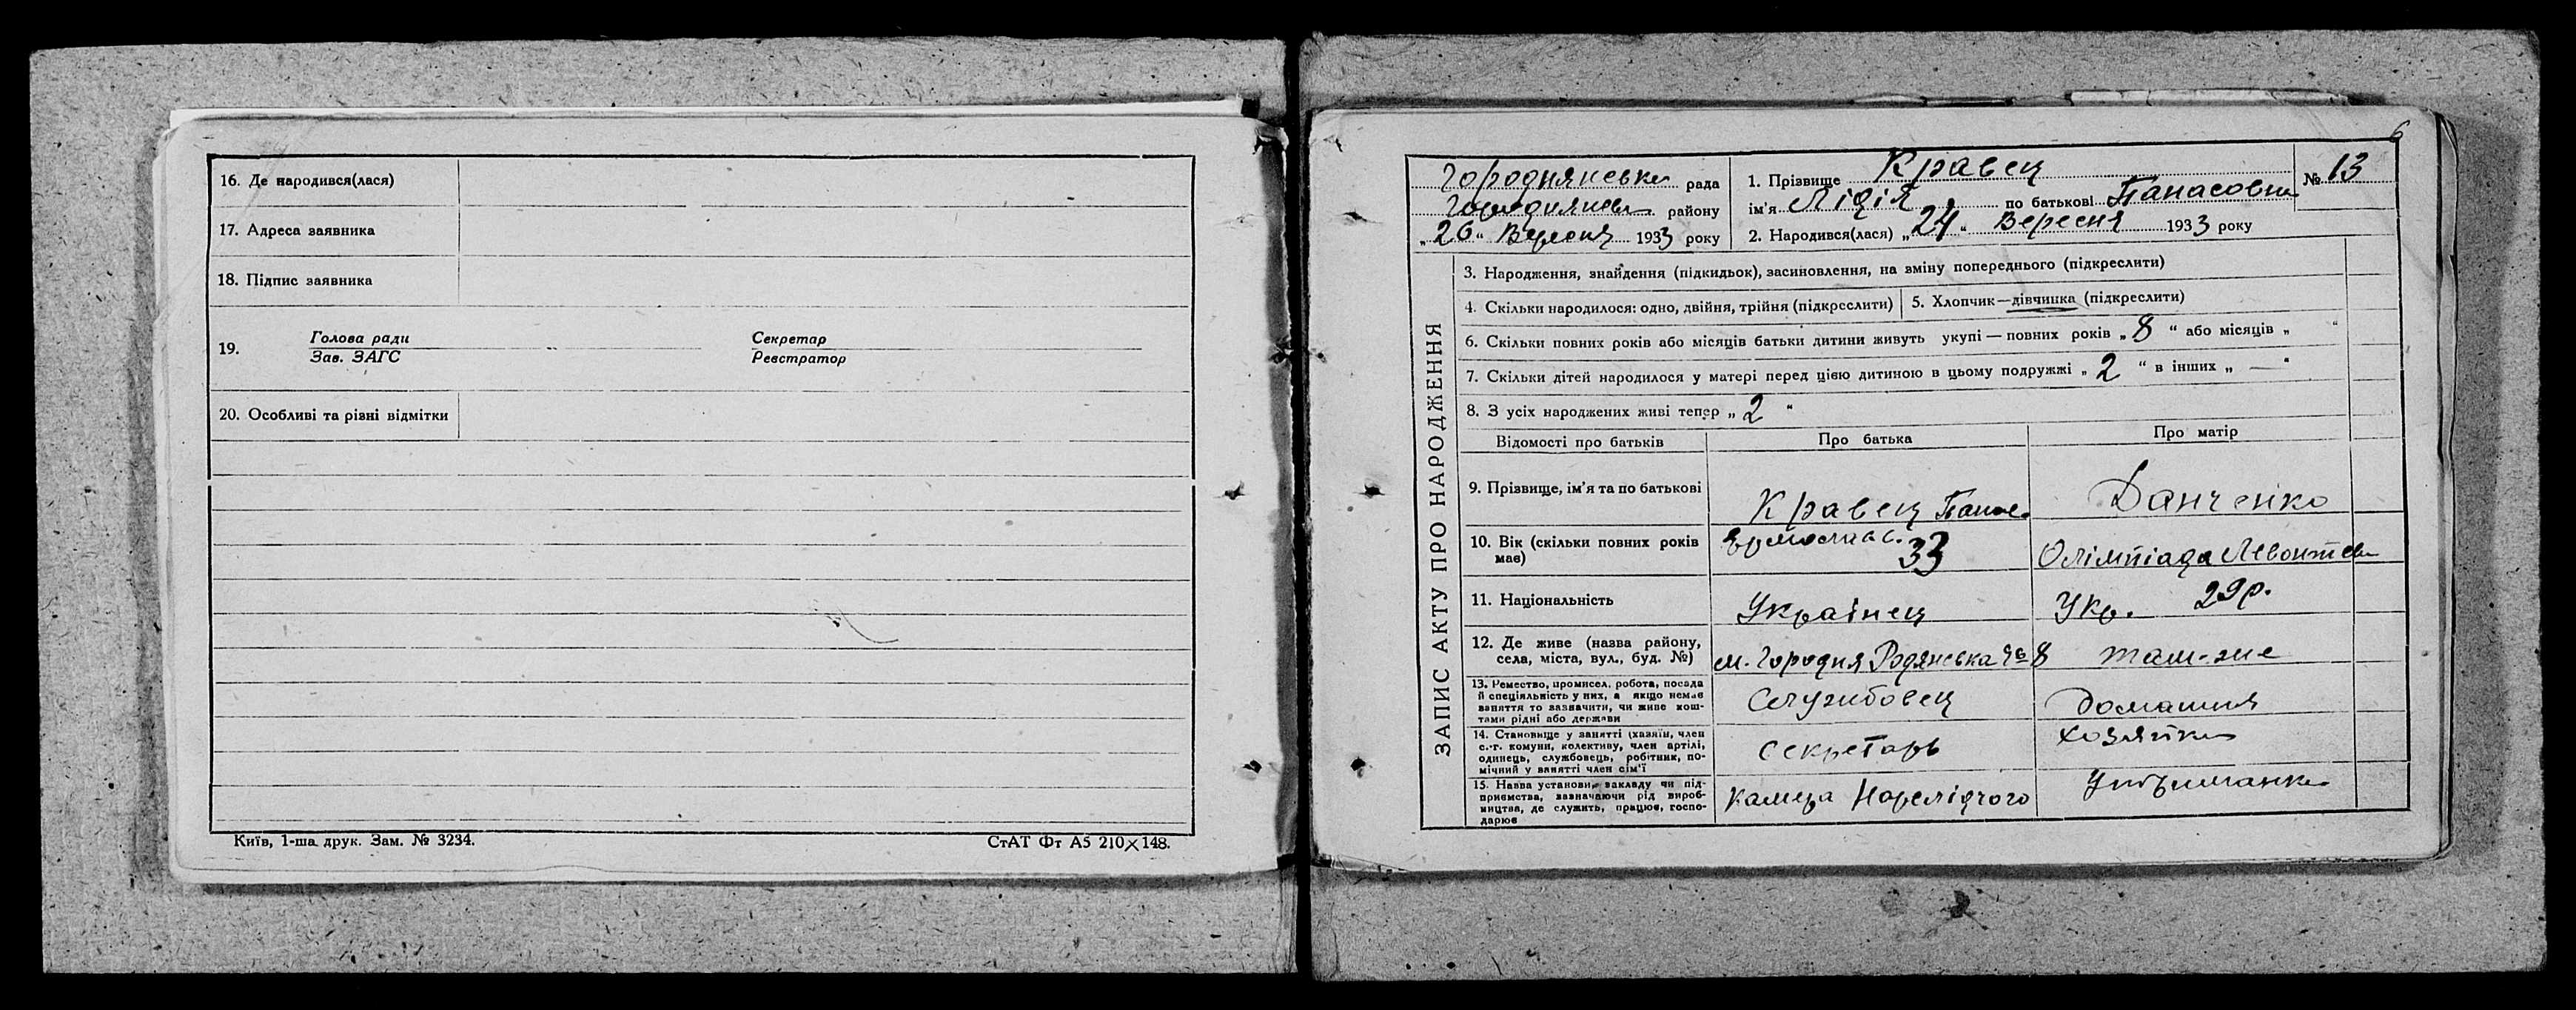 16. Де народився(лася)
17. Адреса заявника
18. Підпис заявника
19. Голова ради Секретар
Зав. ЗАГС Реєстратор
20. Особливі та різні відмітки
Київ, 1-ша друк. Зам. № 3234.
СтАТ Фт А5 210×148.
6
ЗАПИС АКТУ ПРО НАРОДЖЕННЯ
Городнянська рада
району
„26“ Вересня 1933 року
1. Прізвище Кравец
№ 13
ім'я Лідія по батькові Панасовна
2. Народився(лася) „24“ Вересня 1933 року
3. Народження, знайдення (підкидьок), засиновлення, на зміну попереднього (підкреслити)
4. Скільки народилося: одно, двійня, трійня (підкреслити)
5. Хлопчик—дівчинка (підкреслити)
6. Скільки повних років або місяців батьки дитини живуть укупі — повних років „8“ або місяців „ “
7. Скільки дітей народилося у матері перед цією дитиною в цьому подружжі „2“ в інших „—“
8. З усіх народжених живі тепер „2“
Відомості про батьків Про батька Про матір
9. Прізвище, ім'я та по батькові
Кравец Панас
Данченко
10. Вік (скільки повних років
має)
33
Олімпіада
11. Національність
Українец
Укр. 29р.
12. Де живе (назва району,
села, міста, вул., буд. №)
м. Городня 8
там-же
13. Ремество, промисел, робота, посада
й спеціяльність у них, а якщо немає
заняття то зазначити, чи живе кош-
тами рідні або держави
Службовец
Домашня
14. Становище у занятті (хазяїн, член
с.-г. комуни, колективу, член артілі,
одинець, службовець, робітник, по-
мічний у занятті член сім'ї
секретарь
хозяйка
15. Назва установи, закладу чи під-
приємства, зазначаючи рід вироб-
ництва, де служить, працює, госпо-
дарює
Камера Нарслідчого
Утриманка